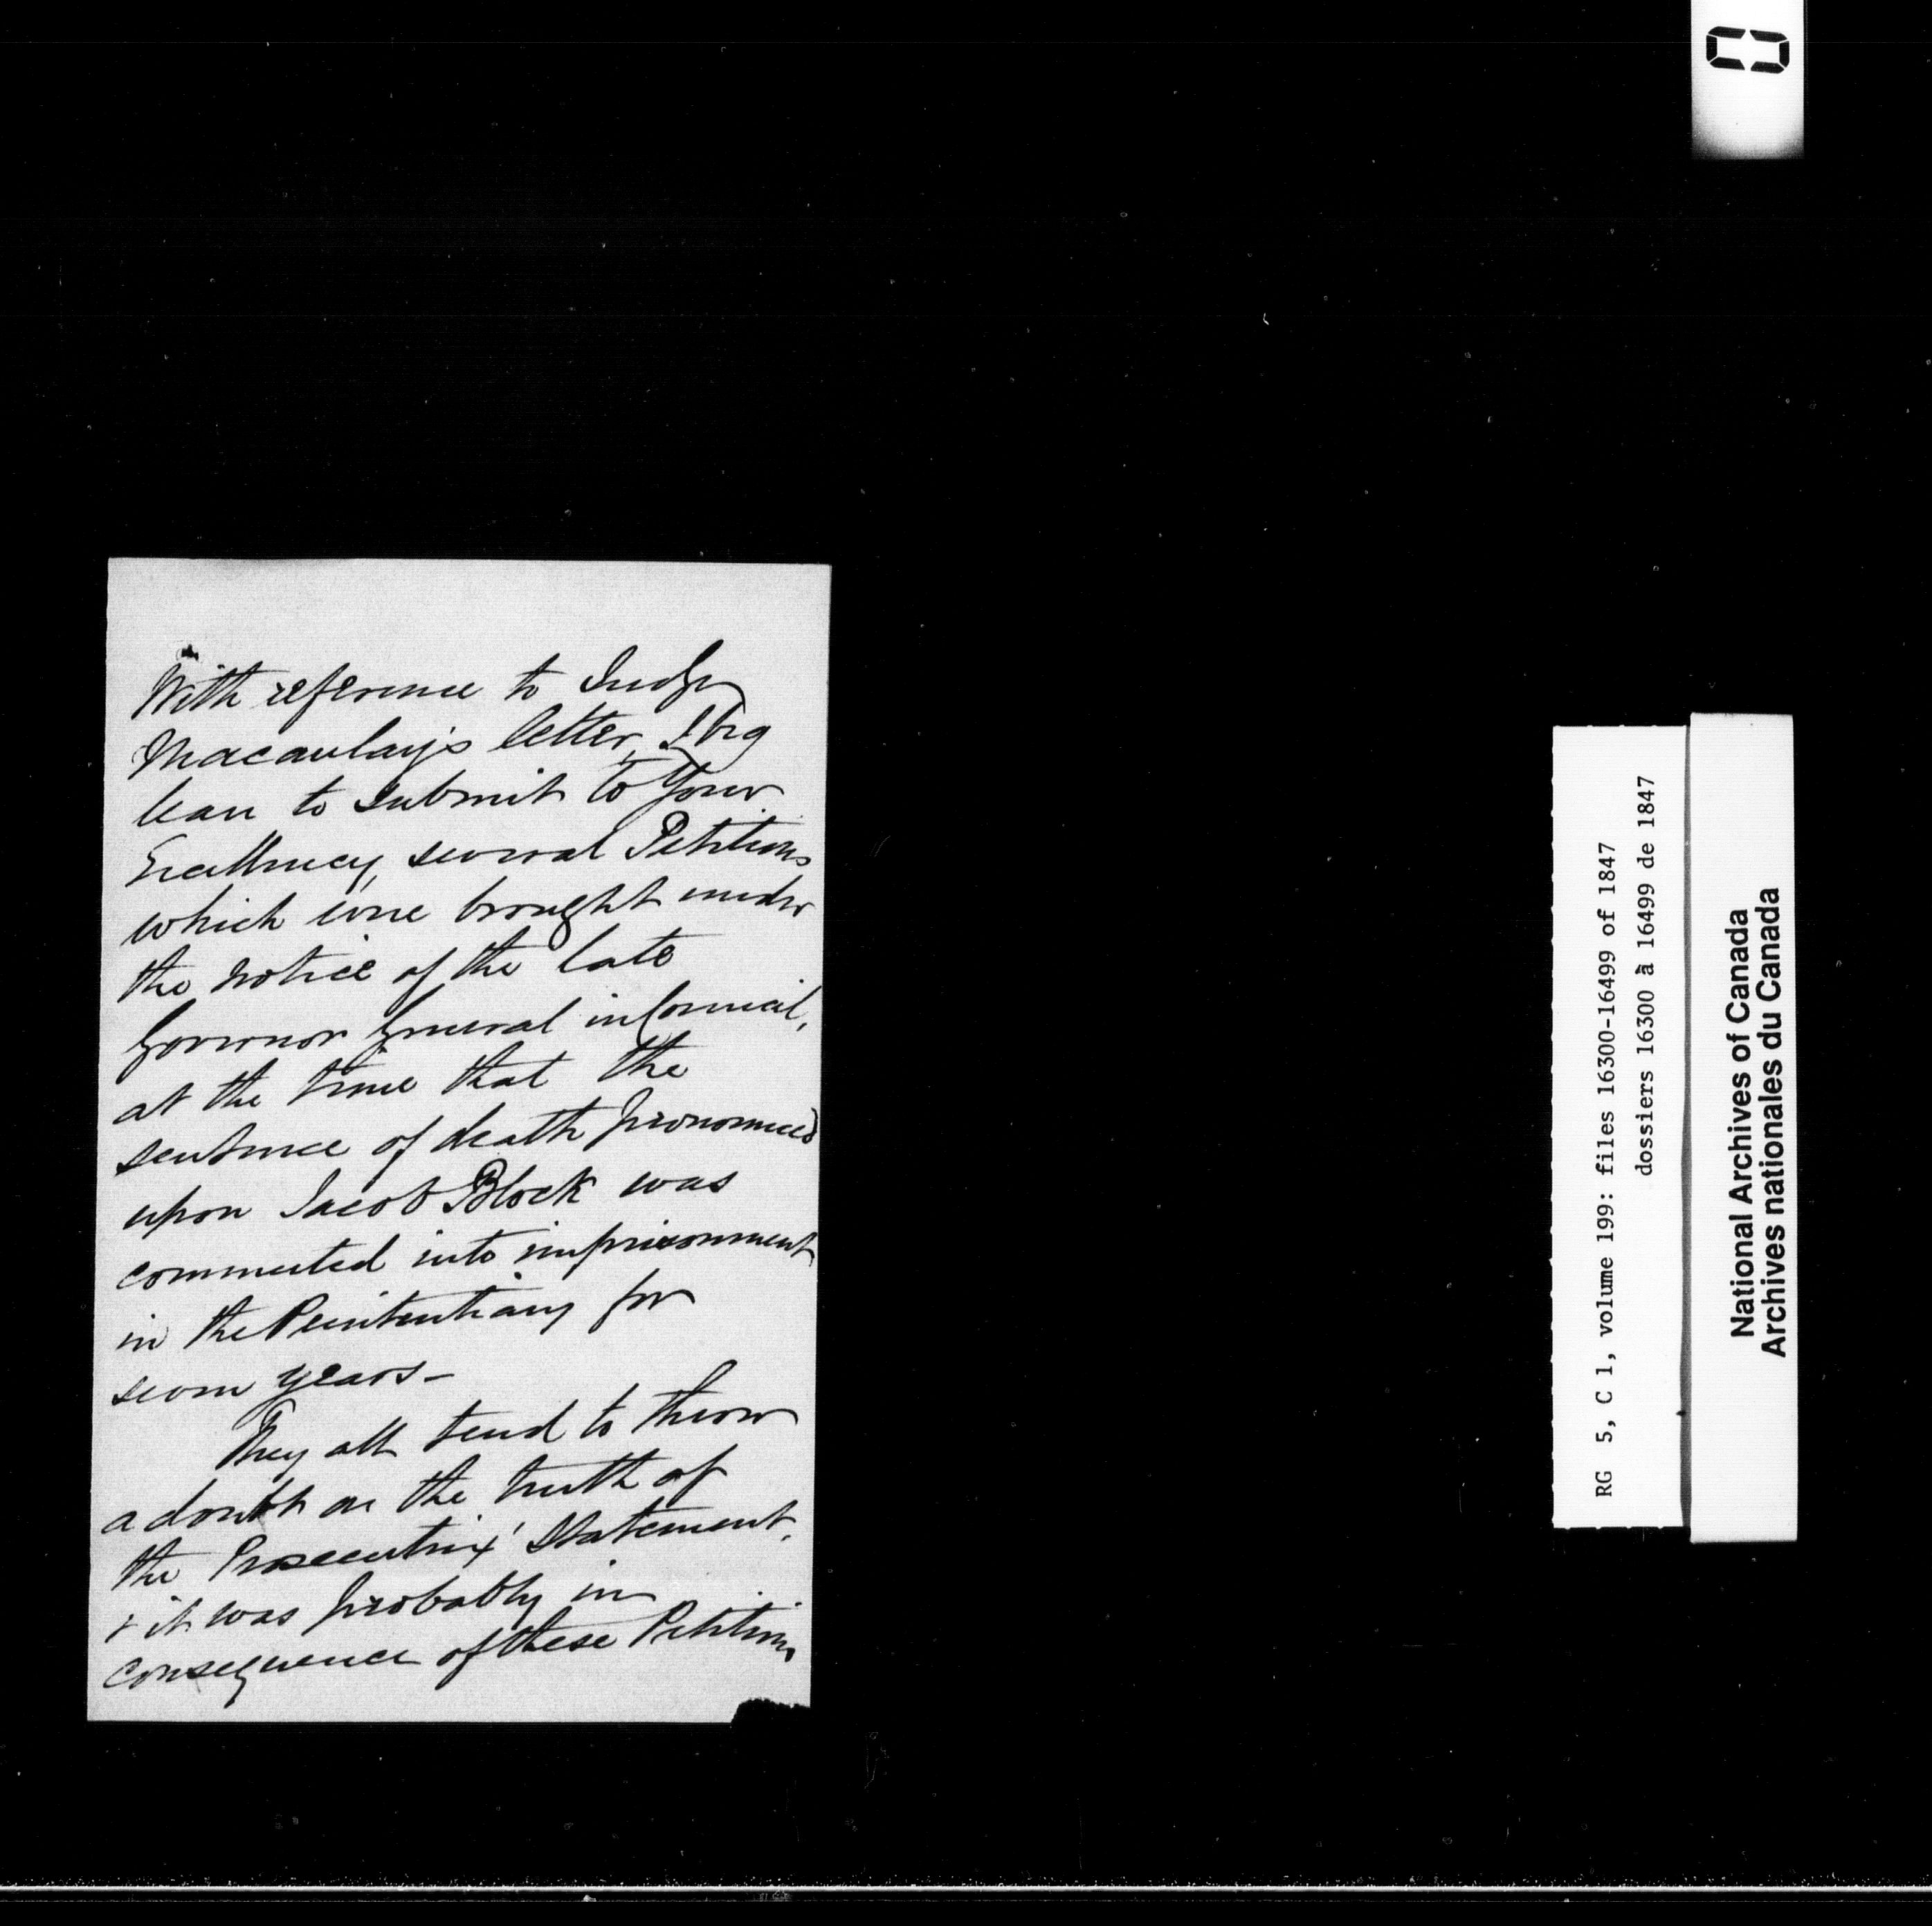 With reference to Judge
Macaulay's letter, I beg
leave to submit to Your
Excellency, several Petitions
which were brought under
the notice of the late
Governor General in Council,
at the time that the
sentence of death pronounced
upon Jacob Block was
commuted into imprisonment
in the Penitentiary for
seven years -
They all tend to throw
a doubt on the truth of
the Prosecutrix' Statement,
& it was probably in
consequence of these Petitions
RG 5, C 1, volume 199: files 16300-16499 of 1847
dossiers 16300 à 16499 de 1847
National Archives of Canada
Archives nationales du Canada